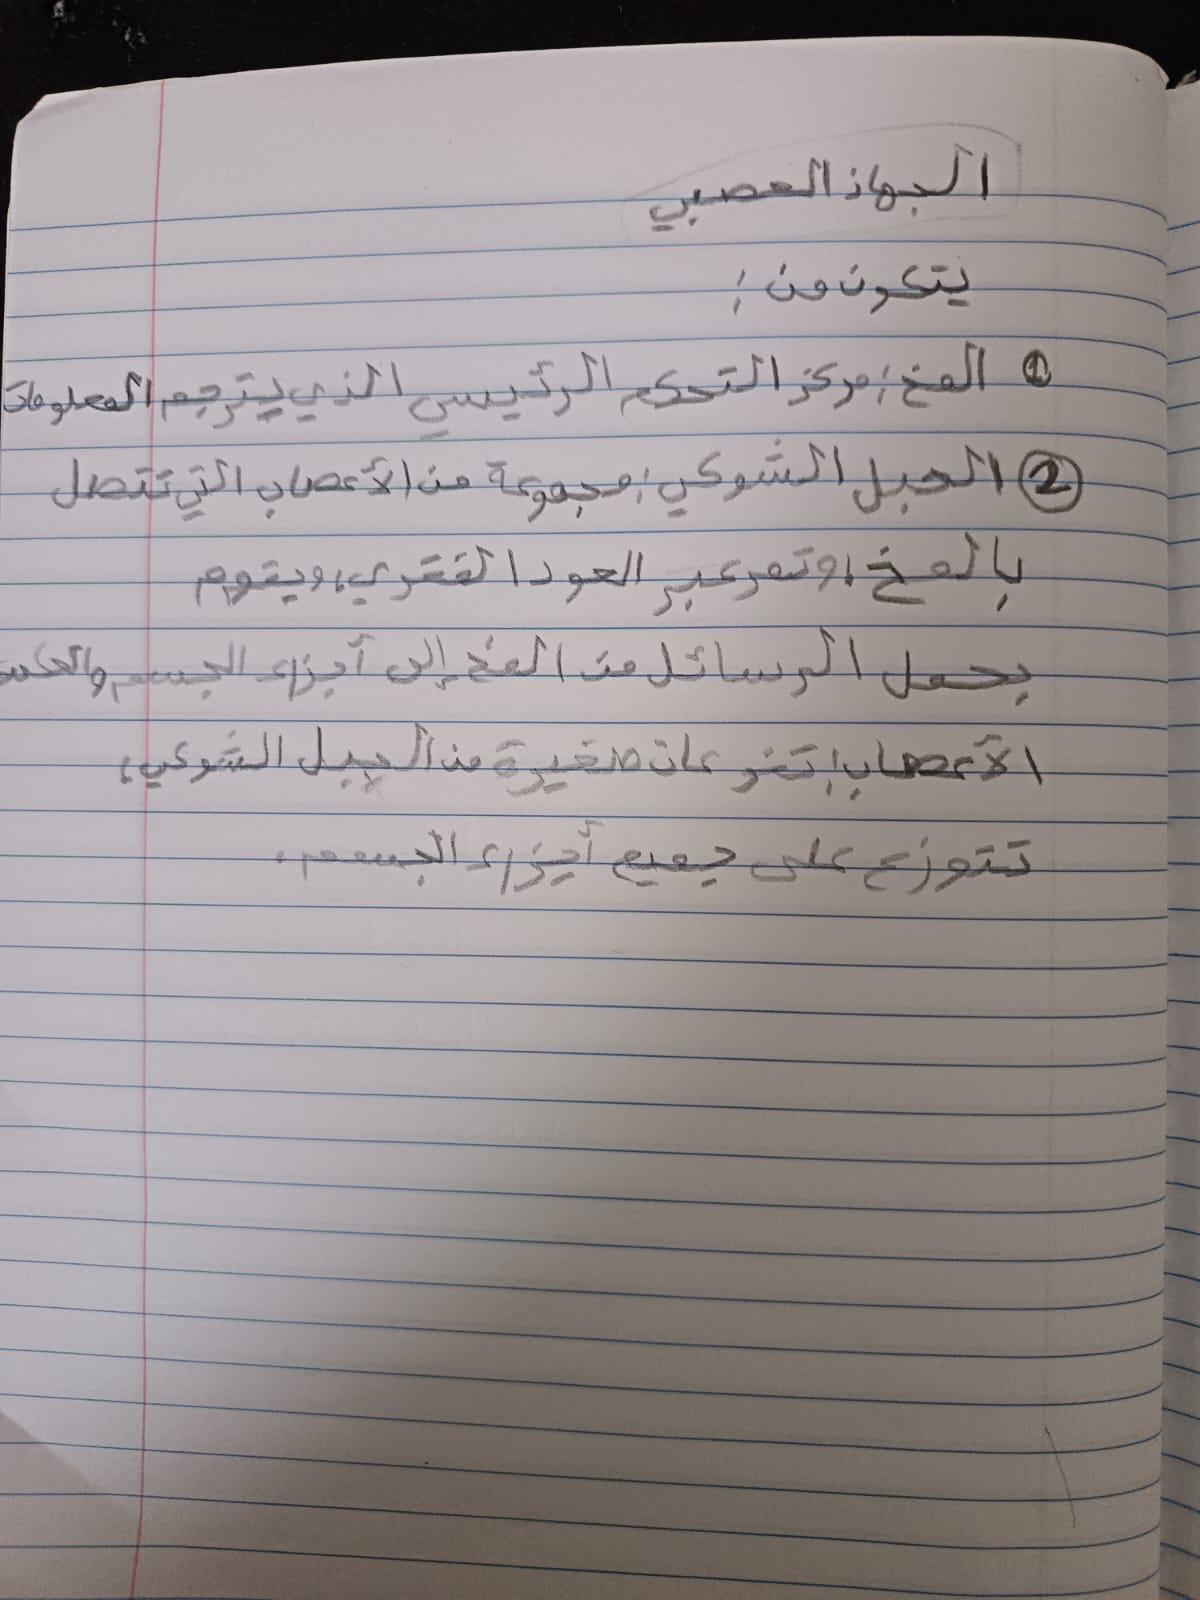 الجهاز العصبي
يتكون من :
① المخ : مركز التحكم الرئيسي الذي يترجم المعلومات
② الحبل الشوكي : مجموعة من الأعصاب التي تتصل
بالمخ ، وتمر عبر العود الفقري ، ويقوم
بحمل الرسائل من المخ إلى أجزاء الجسم والعكس
الأعصاب : صغيرة من الحبل الشوكي ،
تتوزع على جميع أجزاء الجسم .